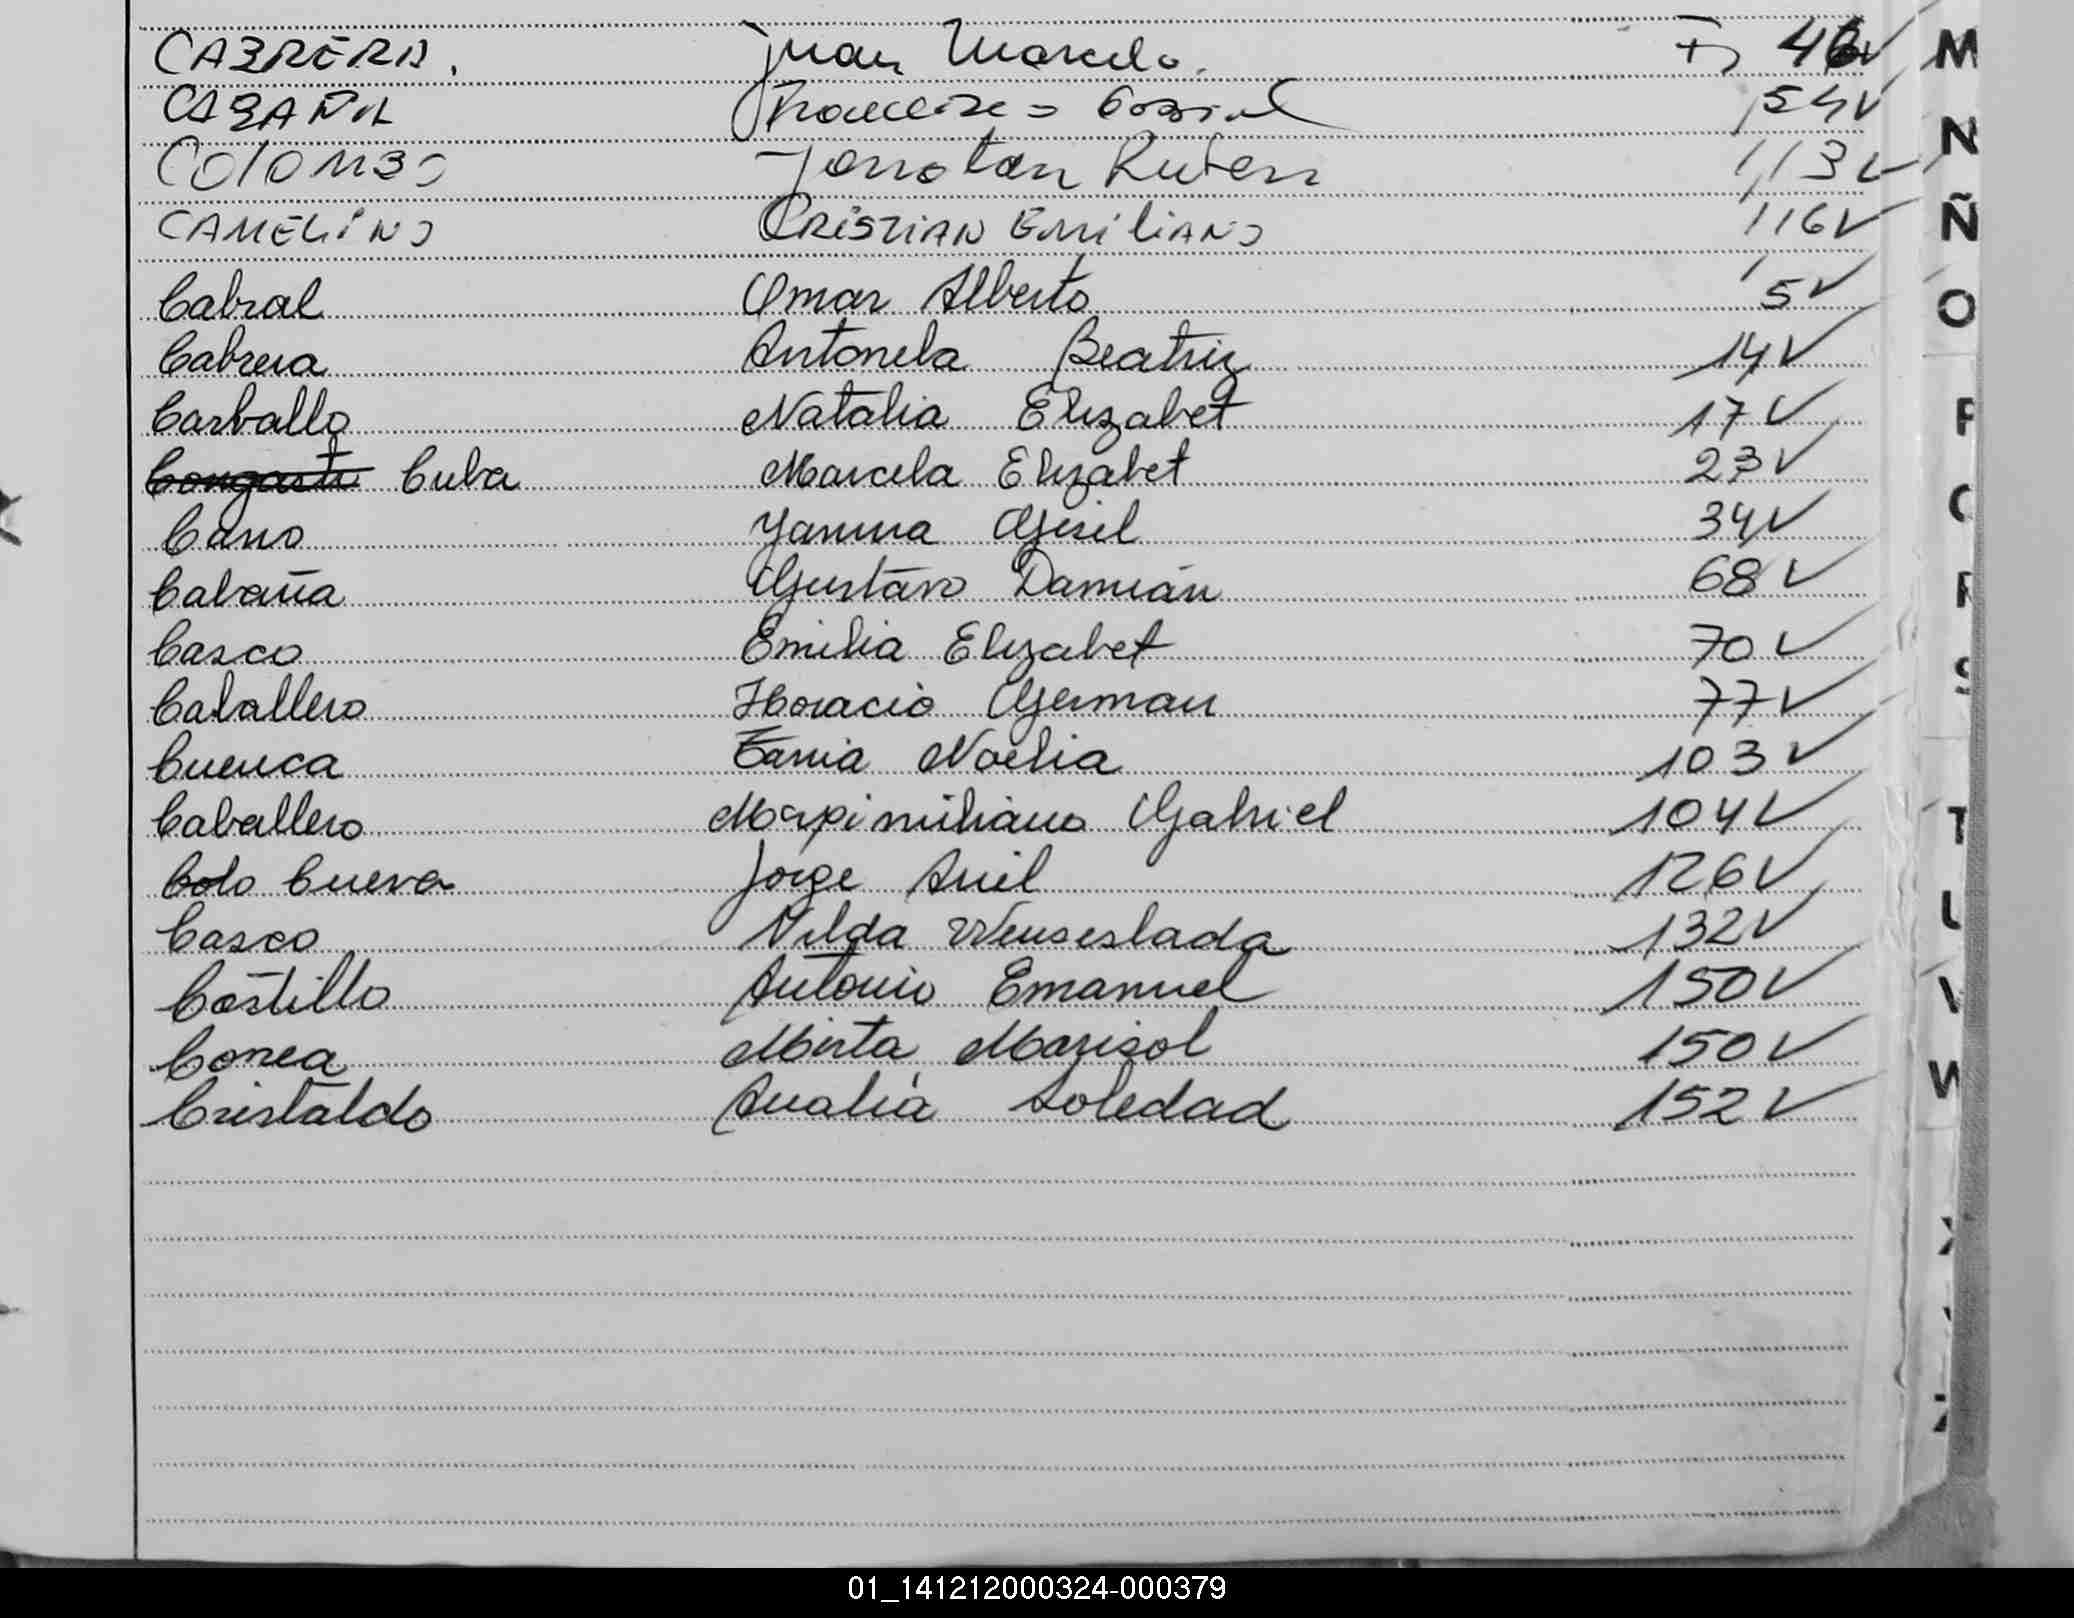 CABRERA. Juan Marcelo. F> 46✓
CABAÑA Francisco 54✓
COLOMBO Jonotan Ruben 113✓
CAMELINO CRISTIAN EMILIANO 116✓
Cabral Omar Alberto 5✓
Cabrera Antonela Beatriz 14✓
Carballo Natalia Elizabet 17✓
Cuba Marcela Elizabet 23✓
Cano Yanina Gisel 34✓
Cabaña Gustavo Damián 68✓
Casco Emilia Elizabet 70✓
Caballero Horacio German 77✓
Cuenca Tania Noelia 103✓
Caballero Maximiliano Gabriel 104✓
Colo Cueva Jorge Ariel 126✓
Casco Nilda Wenseslada 132✓
Castillo Antonio Emanuel 150✓
Correa Mirta Marisol 150✓
Cristaldo Analía Soledad 152✓
M
N
Ñ
O
P
R
S
T
U
V
W
X
Z
01_141212000324-000379